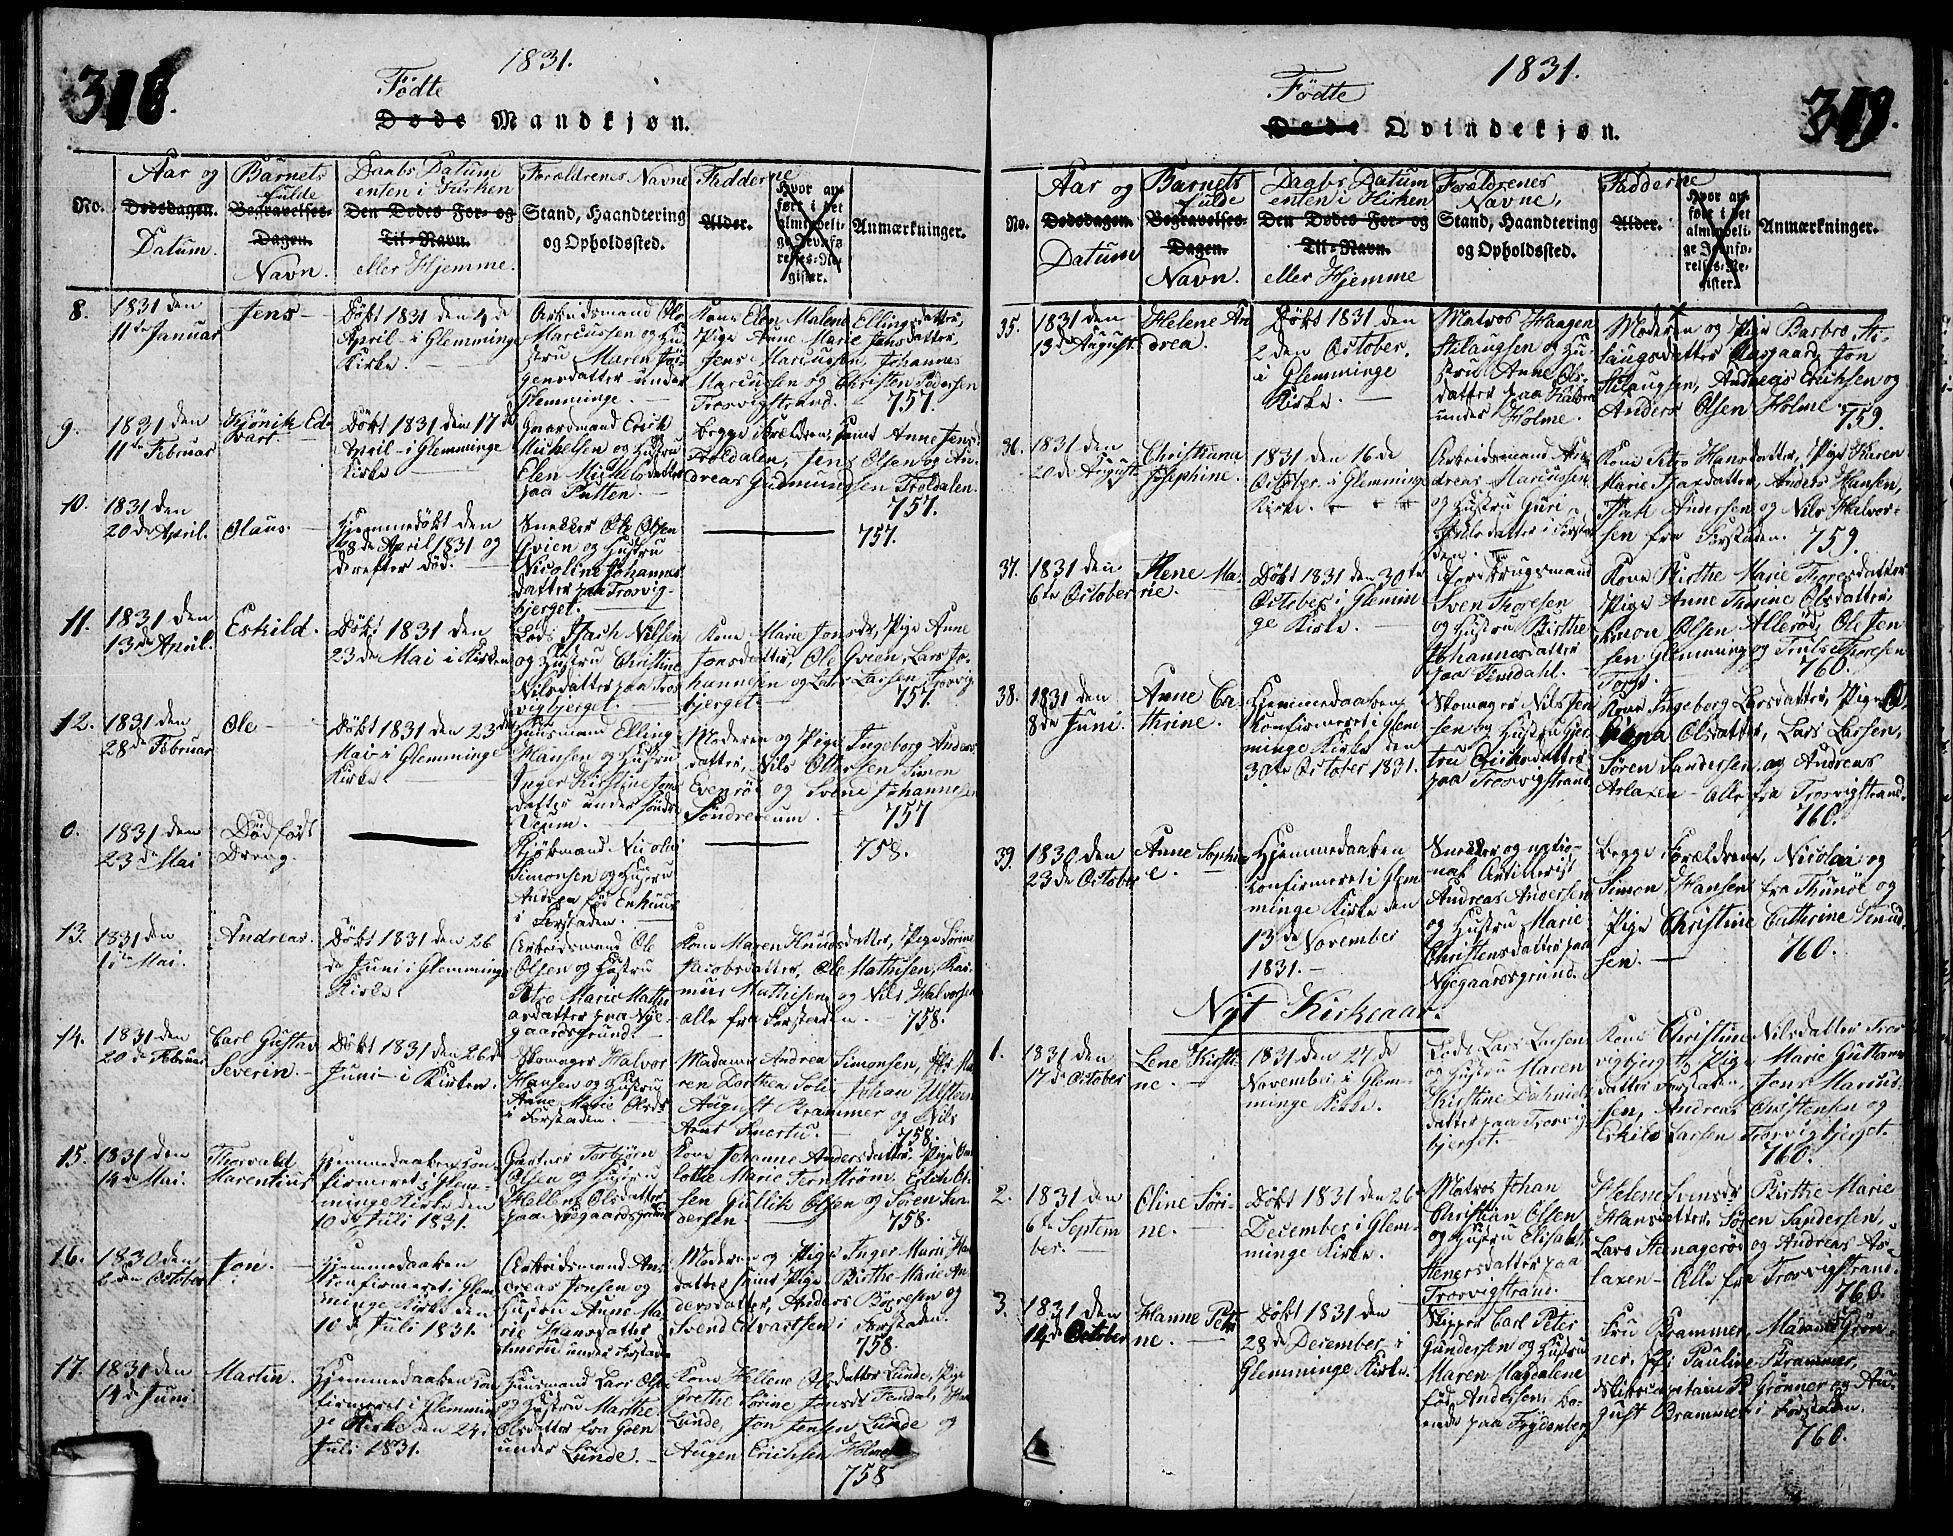 318.
1831.
Födte
Døde Mandkjøn.
No.
Aar og
Dødsdagen.
Datum.
Barnets
fulde
Begravelses-
Dagen.
Navn.
Daabs Datum
enten i Kirken
Den Dødes For- og
Til-Navn.
eller Hjemme.
Forældrenes Navne
Stand, Haandtering
og Opholdssted.
Fadderne
Alder.
Hvor an-
ført i det
almindeli-
ge Jevnfø-
relses-Re-
gister.
Anmærkninger.
8.
1831 den
11te Januar
Jens
Döbt 1831 den 4de
April i Glemminge
Kirke.
Arbeidsmand Ole
Marcussen og Hu-
stru Maren Jör-
gensdatter under
Glemminge.
Kone Elen Malene Ellingsdatter,
Pige Anne Marie Jensdatter,
Jens Marcussen, Johannes
Marcussen og Christen Pedersen
Trosvigstrand.
757.
9.
1831 den
11te Februar
Hjönik Ed-
vart
Döbt 1831 den 17de
April i Glemminge
Kirke
Gaardmand Erich
Mickelsen og Hustru
Elen Mickelsdatter
paa Putten.
begge Forældrene samt Anne Jensd
Troldalen, Jens Olsen og An-
dreas Gudmundsen Troldalen.
757.
10.
1831 den
20de April.
Olaus.
Hjemmedöbt den
28de April 1831 og
derefter död.
Snedker Ole Olsen
Gvien og Hustru
Nicoline Johannes
datter paa Trosvig-
bjerget.
757.
11.
1831 den
13de April.
Eskild.
Döbt 1831 den
23de Mai i Kirken
Lods Isach Nilsen
og Hustru Christine
Nilsdatter paa Tros
vigbjerget.
Kone Marie Jonsdr, Pige Anne
Jonsdatter, Ole Gvien, Lars Jo-
hannesen og Lars Larsen, Trosvig
bjerget.
757.
12.
1831 den
28de Februar
Ole
Döbt 1831 den 23de
Mai i Glemminge
Kirke
Huusmand Elling
Hansen og Hustru
Inger Kirstine Jens
datter under Söndre
Veum.
Moderen og Pige Ingeborg Anders
datter, Nils Ottersen, Simon
Evenröd og Svend Johannesen
Söndreveum.
757
0.
1831 den
23de Mai
Dödfödt
Dreng.
Kjöbmand Nicolai
Simonsen og Hustru
Andrea
i Forstaden.
758.
13.
1831 den
1ste Mai.
Andreas.
Döbt 1831 den 26
de Juni i Glemminge
Kirke
Arbeidsmand Ole
Olsen og Hustru
Petre Marie Mathi
asdatter paa Nye-
gaardsgrund.
Kone Maren Knudsdatter, Pige Sörine
Jacobsdatter, Ole Mathisen, Ras-
mus Mathisen og Nils Halvorsen
alle fra Forstaden.
758.
14.
1831 den
20de Februar
Carl Gustav
Severin.
Döbt 1831 den 26de
Juni i Kirken.
Skomager Halvor
Hansen og Hustru
Anne Marie Olsd
i Forstaden.
Madame Andrea Simonsen, Jfr Ma
ren Dorthea Johan
August Brammer og Nils
Arnt
758
15.
1831 den
14de Mai.
Thorvald
Marentius
Hjemmedaaben con-
firmeret i Glem-
minge Kirke den
10de Juli 1831.
Gartner Torbjörn
Olsen og Hustru
Hellene Olsdatter
paa Nyegaardsgrund
Kone Johanne Andersdatter, Pige Char
lotte Marie Fernström, Erich Ol-
sen, Gullik Olsen og Sören San
dersen.
758.
16.
1830 den
2den October
Jon.
Hjemmedaaben
Konfirmeret i Glem-
minge Kirke den
10de Juli 1831.
Arbeidsmand An-
dreas Jonsen og
Hustru Anne Ma-
rie Hansdatter
under Forstaden
Moderen og Pige Inger Marie Hans
datter samt Pige Birthe Marie An-
dersdatter, Anders Börresen og
Svend Edvartsen i Forstaden.
758.
17.
1831 den
14de Juni.
Martin.
Hjemmedaaben con
firmeret i Glemmin
ge Kirke den 24
Juli 1831.
Huusmand Lars Olsen
og Hustru Marthe
Olsdatter fra Goen
under Lunde.
Kone Hellene Olsdatter Lunde, Pige
Grethe Sörine Jonsdr Femdal,
Lunde, Jon Jensen Lunde og
Augen Erichsen Holme
758
319.
1831.
Födte
Døde Qvindekjøn.
No.
Aar og
Dødsdagen.
Datum
Barnets
fulde
Begravelses-
Dagen.
Navn.
Daabs Datum
enten i Kirken
Den Dødes For- og
Til-Navn.
eller Hjemme
Forældrenes
Navne,
Stand, Haandtering
og Opholdssted.
Fadderne
Alder.
Hvor an-
ført i det
almindeli-
ge Jevnfø-
relses-Re-
gister.
Anmærkninger.
35.
1831 den
13de August
Helene An
drea.
Döbt 1831 den
2den October.
i Glemminge
Kirke.
Matros Haagen
Stilaugsen og Hu-
stru Anne Ols-
datter paa
under Holme.
Moderen og Pige Barbro Sti-
laugsdatter Aasgaard, Jon
Stilaugsen, Andreas Erichsen og
Anders Olsen Holme.
759.
36.
1831 den
20de August
Christiana
Josephine.
1831 den 16de
October i Glemminge
Kirke.
Arbeidsmand An-
dreas Marcussen
og Hustru Guri
datter i Forsta
den.
Kone Petro Hansdatter, Pige Karen
Marie Isaxdatter, Anders Hansen,
Isak Andersen og Nils Halvor-
sen fra Forstaden.
759.
37.
1831 den
6te October
Elene Ma-
rie.
Döbt 1831 den 30te
October i Glemmin
ge Kirke.
Forbrugsmand
Sven Thoresen
og Hustru Birthe
Johannesdatter
paa Femdahl.
Kone Birthe Marie Thoresdatter
Pige Anne Thorine Olsdatter,
Simon Olsen Alleröd, Ole Jen
sen Glemming og Truls Thoresen
Torp.
760.
38.
1831 den
8de Juni
Anne Ca-
thrine.
Hjemmedaaben
Konfirmeret i Glem-
minge Kirke den
30te October 1831.
Skomager Nils Sten
sen og Hustru Ger-
tru Erichsdatter
paa Trosvigstrand
Kone Ingeborg Larsdatter, Pige
Olsdatter, Lars Larsen,
Sören Sandersen og Andreas
Aslaxen alle fra Trosvigstrand.
760.
39.
1830 den
23de October
Anne Sophi
e.
Hjemmedaaben
Konfirmeret i Glem
minge Kirke den
13de November
1831.
Snedker og natio-
nal Artillerist
Andreas Andersen
og Hustru Marie
Christensdatter paa
Nyegaardsgrund.
begge Forældrene, Nicolai og
Simon Hansen fra Thunöe og
Pige Christine Cathrine Knud
sen.
760.
Nyt Kirkeaar.
1.
1831 den
17de October
Lene Kirsti-
ne.
1831 den 27de
November i Glem-
minge Kirke.
Lods Lars Larsen
og Hustru Maren
Kirstine
datter paa Trosvig
bjerget.
Kone Christine Nilsdatter Tros-
vigbjerg, Pige Marie Guttorms
datter Forstaden, Jens Marcus-
sen, Andreas Christensen og
Eskild Larsen Trosvigbjerget.
760.
2.
1831 den
6te Septem
ber.
Oline Söri-
ne.
Döbt 1831 den 26de
December i Glem-
minge Kirke.
Matros Johan
Christian Olsen
og Hustru Elisabet
Stenersdatter paa
Trosvigstrand.
Helene Svensdr, Birthe Marie
Hansdatter, Sören Sandersen,
Lars Stenageröd og Andreas As-
laxen Alle fra Trosvigstrand.
760.
3.
1831 den
14de October
Hanne Petri
ne.
Döbt 1831 den
28de December i
Glemminge Kirke.
Skipper Carl Peter
Gundersen og Hustru
Maren Magdalene
föd Andersen, bo-
ende paa
Fru Brammer, Madame Grön-
ner, Jfr Pauline Brammer,
Skibscapitain P. Grönner og Au-
gust Brammer i Forstaden.
760.